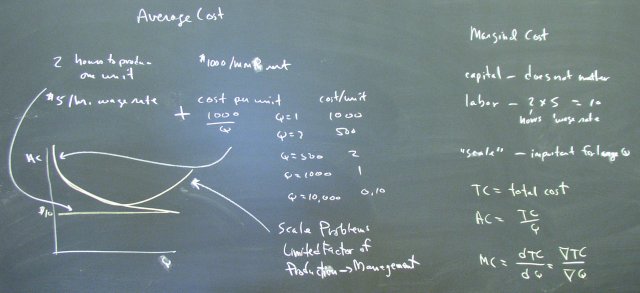 Average Cost
2 hours to produce
one unit
$1000/
$5/hr. wage rate
+
cost per unit
1000
Q
cost/unit
Q=1 1000
Q=2 500
Q=500 2
Q=1000 1
Q=10,000 0,10
AC
$10
Q
Scale Problems
Limited Factor of
Production → Management
Marginal Cost
capital – does not matter
labor – 2 x 5 = 10
hours wage rate
"scale" – important for large Q
TC = total cost
AC = TC
Q
MC = dTC = ∇TC
dQ ∇Q